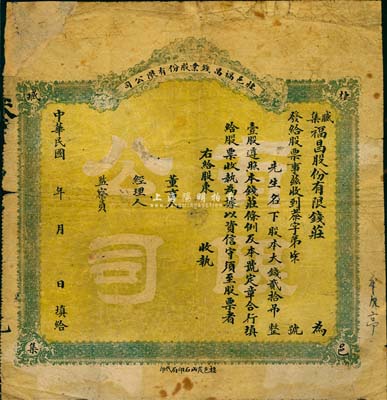 桂邑福昌錢業股份有限公司
城
桂
集
邑
臧集福昌股份有限錢莊 為
發給股票事茲收到 字第 號
先生名下股本大錢貳拾吊整
壹股遵照本錢莊條例及本號定章合行填
給股票收執為據以資信守須至股票者
右給股東 收執
董事人
經理人
監察員
中華民國 年 月 日填給
公司
上海陽明拍
桂邑 山石印局代印